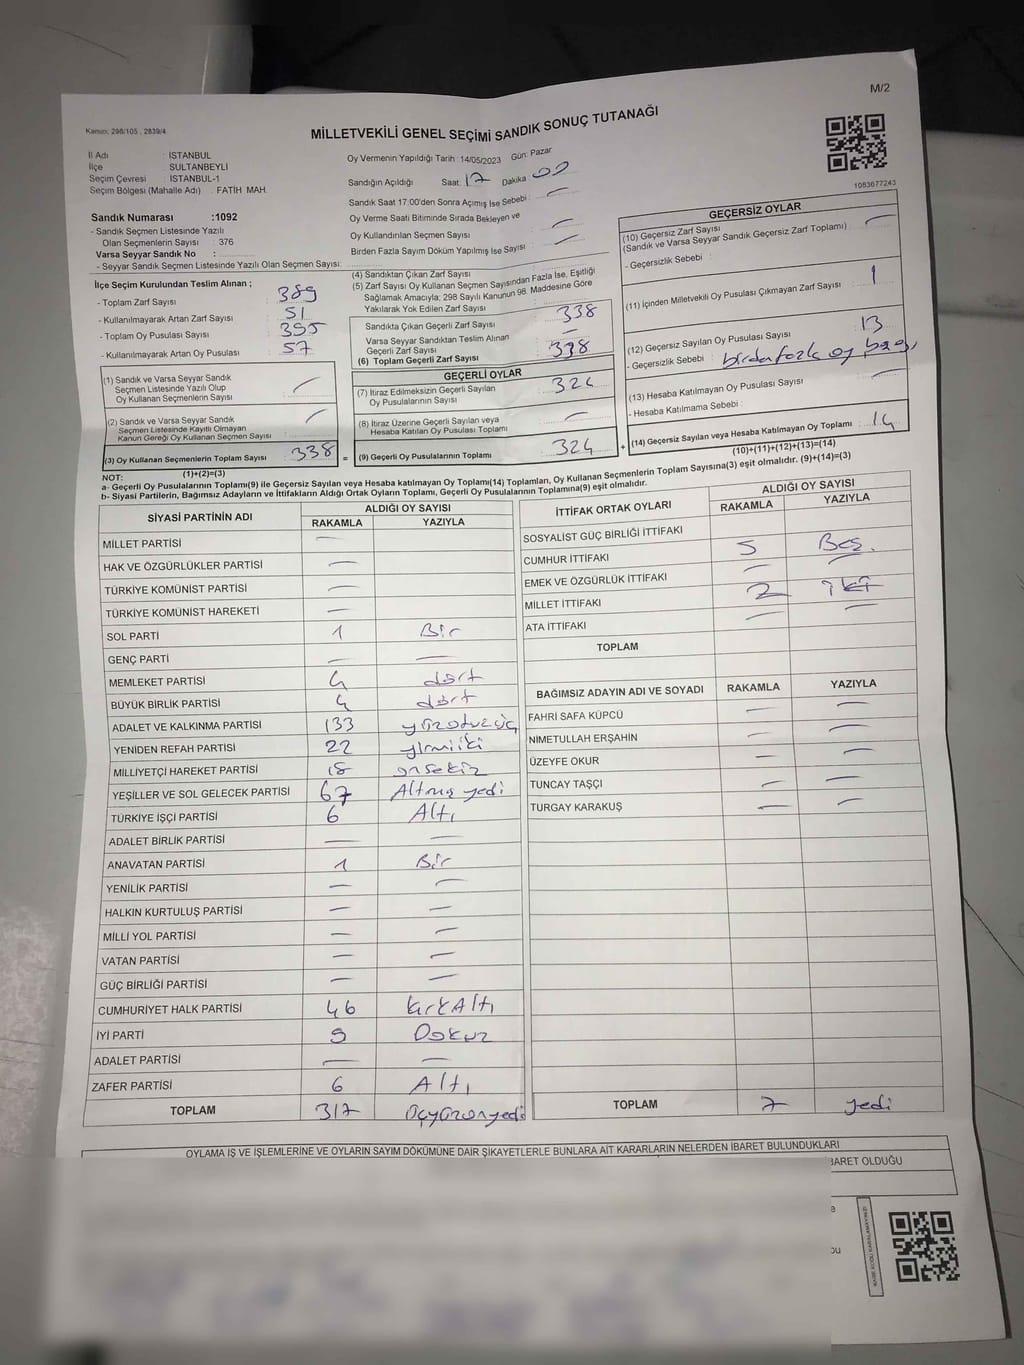 M/2
Kanun: 298/105 , 2839/4
MİLLETVEKİLİ GENEL SEÇİMİ SANDIK SONUÇ TUTANAĞI
İl Adı : İSTANBUL
İlçe : SULTANBEYLİ
Seçim Çevresi : İSTANBUL-1
Seçim Bölgesi (Mahalle Adı) : FATİH MAH.
Oy Vermenin Yapıldığı Tarih : 14/05/2023 Gün: Pazar
Sandığın Açıldığı Saat: 17 Dakika: 00
Sandık Saat 17:00'den Sonra Açımış İse Sebebi : —
Oy Verme Saati Bitiminde Sırada Bekleyen ve
Oy Kullandırılan Seçmen Sayısı : —
Birden Fazla Sayım Döküm Yapılmış İse Sayısı : —
1083677243
Sandık Numarası :1092
- Sandık Seçmen Listesinde Yazılı
Olan Seçmenlerin Sayısı : 376
Varsa Seyyar Sandık No :
- Seyyar Sandık Seçmen Listesinde Yazılı Olan Seçmen Sayısı:
İlçe Seçim Kurulundan Teslim Alınan ;
- Toplam Zarf Sayısı : 389
- Kullanılmayarak Artan Zarf Sayısı : 51
- Toplam Oy Pusulası Sayısı : 395
- Kullanılmayarak Artan Oy Pusulası : 57
(1) Sandık ve Varsa Seyyar Sandık
Seçmen Listesinde Yazılı Olup
Oy Kullanan Seçmenlerin Sayısı : —
(2) Sandık ve Varsa Seyyar Sandık
Seçmen Listesinde Kayıtlı Olmayan
Kanun Gereği Oy Kullanan Seçmen Sayısı : —
(3) Oy Kullanan Seçmenlerin Toplam Sayısı : 338
(1)+(2)=(3)
(4) Sandıktan Çıkan Zarf Sayısı
(5) Zarf Sayısı Oy Kullanan Seçmen Sayısından Fazla İse, Eşitliği
Sağlamak Amacıyla; 298 Sayılı Kanunun 98. Maddesine Göre
Yakılarak Yok Edilen Zarf Sayısı :
Sandıkta Çıkan Geçerli Zarf Sayısı : 338
Varsa Seyyar Sandıktan Teslim Alınan
Geçerli Zarf Sayısı : —
(6) Toplam Geçerli Zarf Sayısı : 338
GEÇERLİ OYLAR
(7) İtiraz Edilmeksizin Geçerli Sayılan
Oy Pusulalarının Sayısı : 324
(8) İtiraz Üzerine Geçerli Sayılan veya
Hesaba Katılan Oy Pusulası Toplamı : —
= (9) Geçerli Oy Pusulalarının Toplamı : 324
GEÇERSİZ OYLAR
(10) Geçersiz Zarf Sayısı
(Sandık ve Varsa Seyyar Sandık Geçersiz Zarf Toplamı) : —
- Geçersizlik Sebebi :
(11) İçinden Milletvekili Oy Pusulası Çıkmayan Zarf Sayısı : 1
(12) Geçersiz Sayılan Oy Pusulası Sayısı : 13
- Geçersizlik Sebebi : birden fazla oy
(13) Hesaba Katılmayan Oy Pusulası Sayısı : —
- Hesaba Katılmama Sebebi :
+ (14) Geçersiz Sayılan veya Hesaba Katılmayan Oy Toplamı : 14
(10)+(11)+(12)+(13)=(14)
NOT:
a- Geçerli Oy Pusulalarının Toplamı(9) ile Geçersiz Sayılan veya Hesaba katılmayan Oy Toplamı(14) Toplamları, Oy Kullanan Seçmenlerin Toplam Sayısına(3) eşit olmalıdır. (9)+(14)=(3)
b- Siyasi Partilerin, Bağımsız Adayların ve İttifakların Aldığı Ortak Oyların Toplamı, Geçerli Oy Pusulalarının Toplamına(9) eşit olmalıdır.
SİYASİ PARTİNİN ADI ALDIĞI OY SAYISI
RAKAMLA YAZIYLA
MİLLET PARTİSİ —
HAK VE ÖZGÜRLÜKLER PARTİSİ —
TÜRKİYE KOMÜNİST PARTİSİ —
TÜRKİYE KOMÜNİST HAREKETİ —
SOL PARTİ 1 Bir
GENÇ PARTİ — —
MEMLEKET PARTİSİ 4 dört
BÜYÜK BİRLİK PARTİSİ 4 dört
ADALET VE KALKINMA PARTİSİ 133 yüzotuzüç
YENİDEN REFAH PARTİSİ 22 yirmiiki
MİLLİYETÇİ HAREKET PARTİSİ 18 onsekiz
YEŞİLLER VE SOL GELECEK PARTİSİ 67 Altmış yedi
TÜRKİYE İŞÇİ PARTİSİ 6 Altı
ADALET BİRLİK PARTİSİ — —
ANAVATAN PARTİSİ 1 Bir
YENİLİK PARTİSİ — —
HALKIN KURTULUŞ PARTİSİ — —
MİLLİ YOL PARTİSİ — —
VATAN PARTİSİ — —
GÜÇ BİRLİĞİ PARTİSİ — —
CUMHURİYET HALK PARTİSİ 46 kırkAltı
İYİ PARTİ 9 Dokuz
ADALET PARTİSİ — —
ZAFER PARTİSİ 6 Altı
TOPLAM 317 üçyüzonyedi
İTTİFAK ORTAK OYLARI ALDIĞI OY SAYISI
RAKAMLA YAZIYLA
SOSYALİST GÜÇ BİRLİĞİ İTTİFAKI
CUMHUR İTTİFAKI 5 Beş.
EMEK VE ÖZGÜRLÜK İTTİFAKI — —
MİLLET İTTİFAKI 2 iki
ATA İTTİFAKI — —
TOPLAM
BAĞIMSIZ ADAYIN ADI VE SOYADI RAKAMLA YAZIYLA
FAHRİ SAFA KÜPCÜ — —
NİMETULLAH ERŞAHİN — —
ÜZEYFE OKUR — —
TUNCAY TAŞÇI — —
TURGAY KARAKUŞ — —
TOPLAM 7 yedi
OYLAMA İŞ VE İŞLEMLERİNE VE OYLARIN SAYIM DÖKÜMÜNE DAİR ŞİKAYETLERLE BUNLARA AİT KARARLARIN NELERDEN İBARET BULUNDUKLARI
BARET OLDUĞU